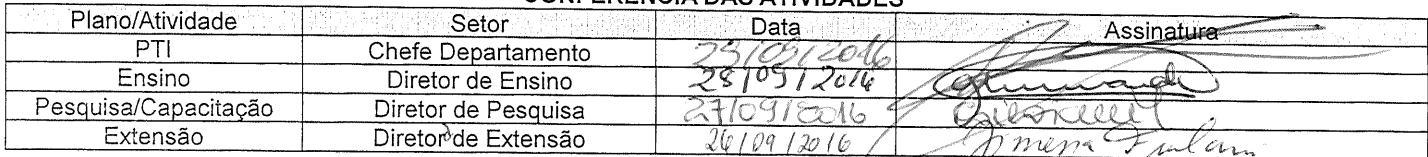 CONFERÊNCIA DAS ATIVIDADES
Plano/Atividade Setor Data Assinatura
PTI Chefe Departamento /09/2016
Ensino Diretor de Ensino 28/09/2016
Pesquisa/Capacitação Diretor de Pesquisa 27/09/2016
Extensão Diretor de Extensão 26/09/2016